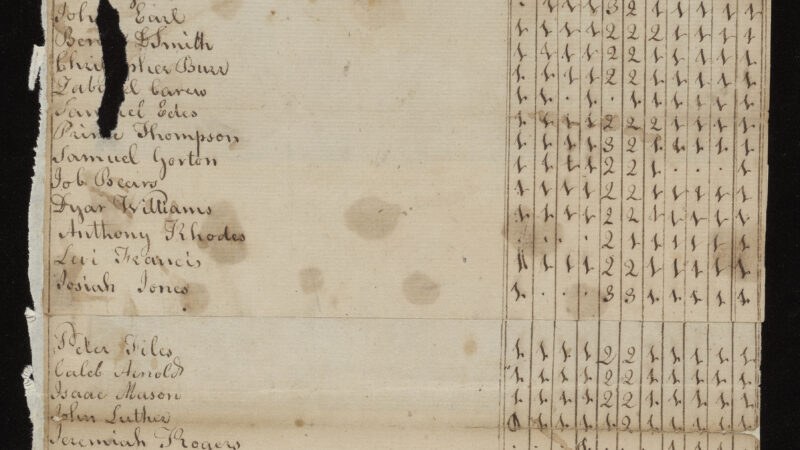 . 1 1 1 3 2 1 1 1 1 1
Joh Earl 1 1 1 1 2 2 2 1 1 1 1
Ben Smith 1 1 1 1 2 2 1 1 1 1 1
Christopher Burr 1 1 1 1 2 2 1 1 1 1 1
Carew 1 1 . 1 . 1 1 1 1 1 1
Samuel Edes 1 1 1 1 2 2 2 1 1 1 1
Prince Thompson 1 1 1 1 3 2 1 1 1 1 1
Samuel Gorton 1 1 1 1 2 2 1 . . . 1
Job Bears 1 1 1 1 2 2 1 1 1 1 1
Dyar Williams 1 1 1 1 2 2 1 1 1 1 1
Anthony Rhodes . . . . 2 1 1 1 1 1 1
Levi Francis 1 1 1 1 2 2 1 1 1 1 1
Josiah Jones 1 . . . 3 3 1 1 1 1 1
Peter Files 1 1 1 1 2 2 1 1 1 1 1
Caleb Arnold 1 1 1 1 2 2 1 1 1 1 1
Isaac Mason 1 1 1 1 2 2 1 1 1 1 1
John Luther 1 1 1 1 1 1 1 1 1 1 1
Jeremiah Rogers